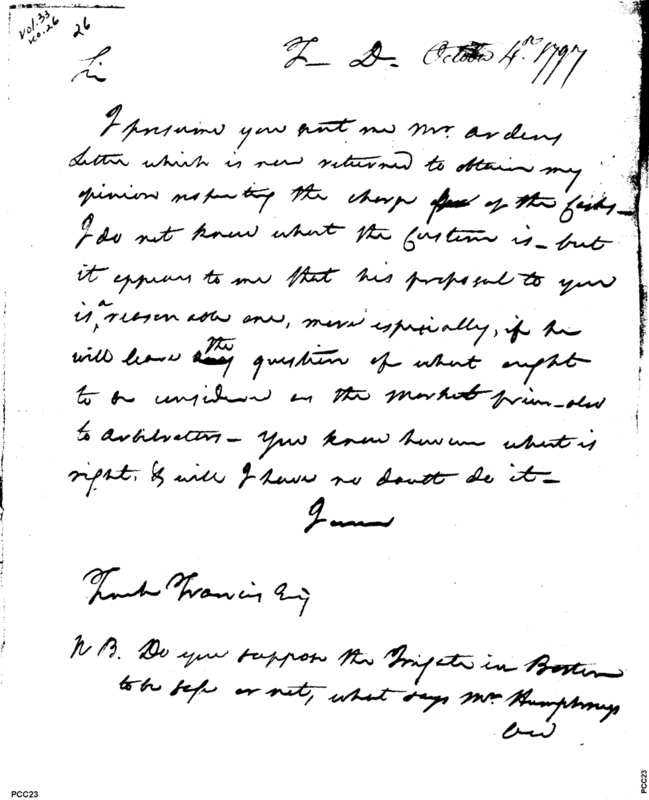 Vol. 33
no. 26
26
T— D— October 4th 1797
Sir
I presume you sent me Mr. Ardens
Letter which is now returned to obtain my
opinion respecting the charge of the Casks—
I do not know what the Custom is— but
it appears to me that his proposal to you
is a reasonable one, more especially, if he
will leave the question of what ought
to be considered as the Market price also
to Arbitrators— You know however what is
right, & will I have no doubt do it—
Tench Francis Esq
N B. Do you suppose the Frigate in Boston
to be safe or not, what says Mr Humphreys
PCC23
PCC23